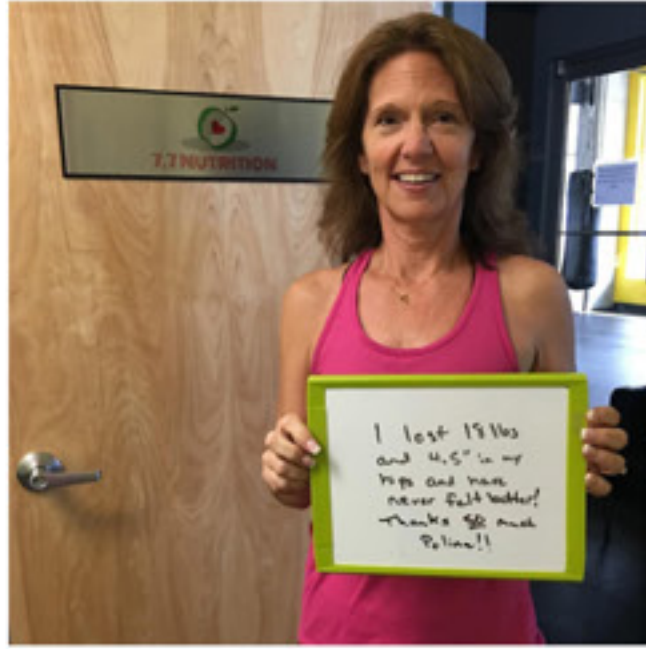 7.7 NUTRITION
I lost 18 lbs
and 4.5" in my
hips and have
never felt better!
Thanks SO much
Polina!!